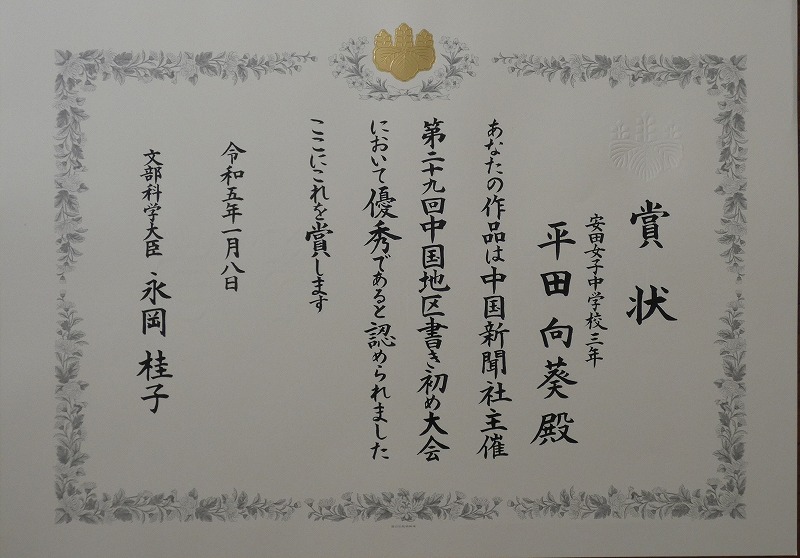 賞状
安田女子中学校三年
平田向葵殿
あなたの作品は中国新聞社主催
第二十九回中国地区書き初め大会
において優秀であると認められました
ここにこれを賞します
令和五年一月八日
文部科学大臣 永岡桂子